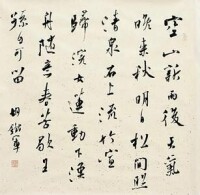 空山新雨後天氣
晚來秋明月松間照
清泉石上流竹喧
歸浣女蓮動下漁
舟隨意春芳歇王
孫自可留
胡鐵軍